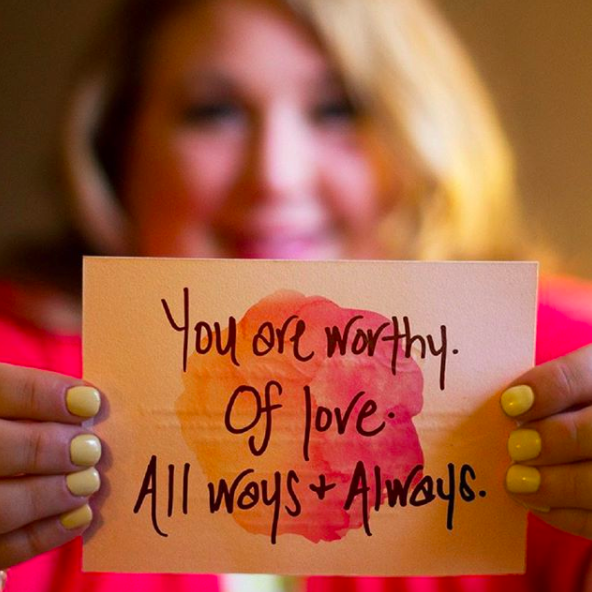 You are worthy.
Of love.
All ways + Always.